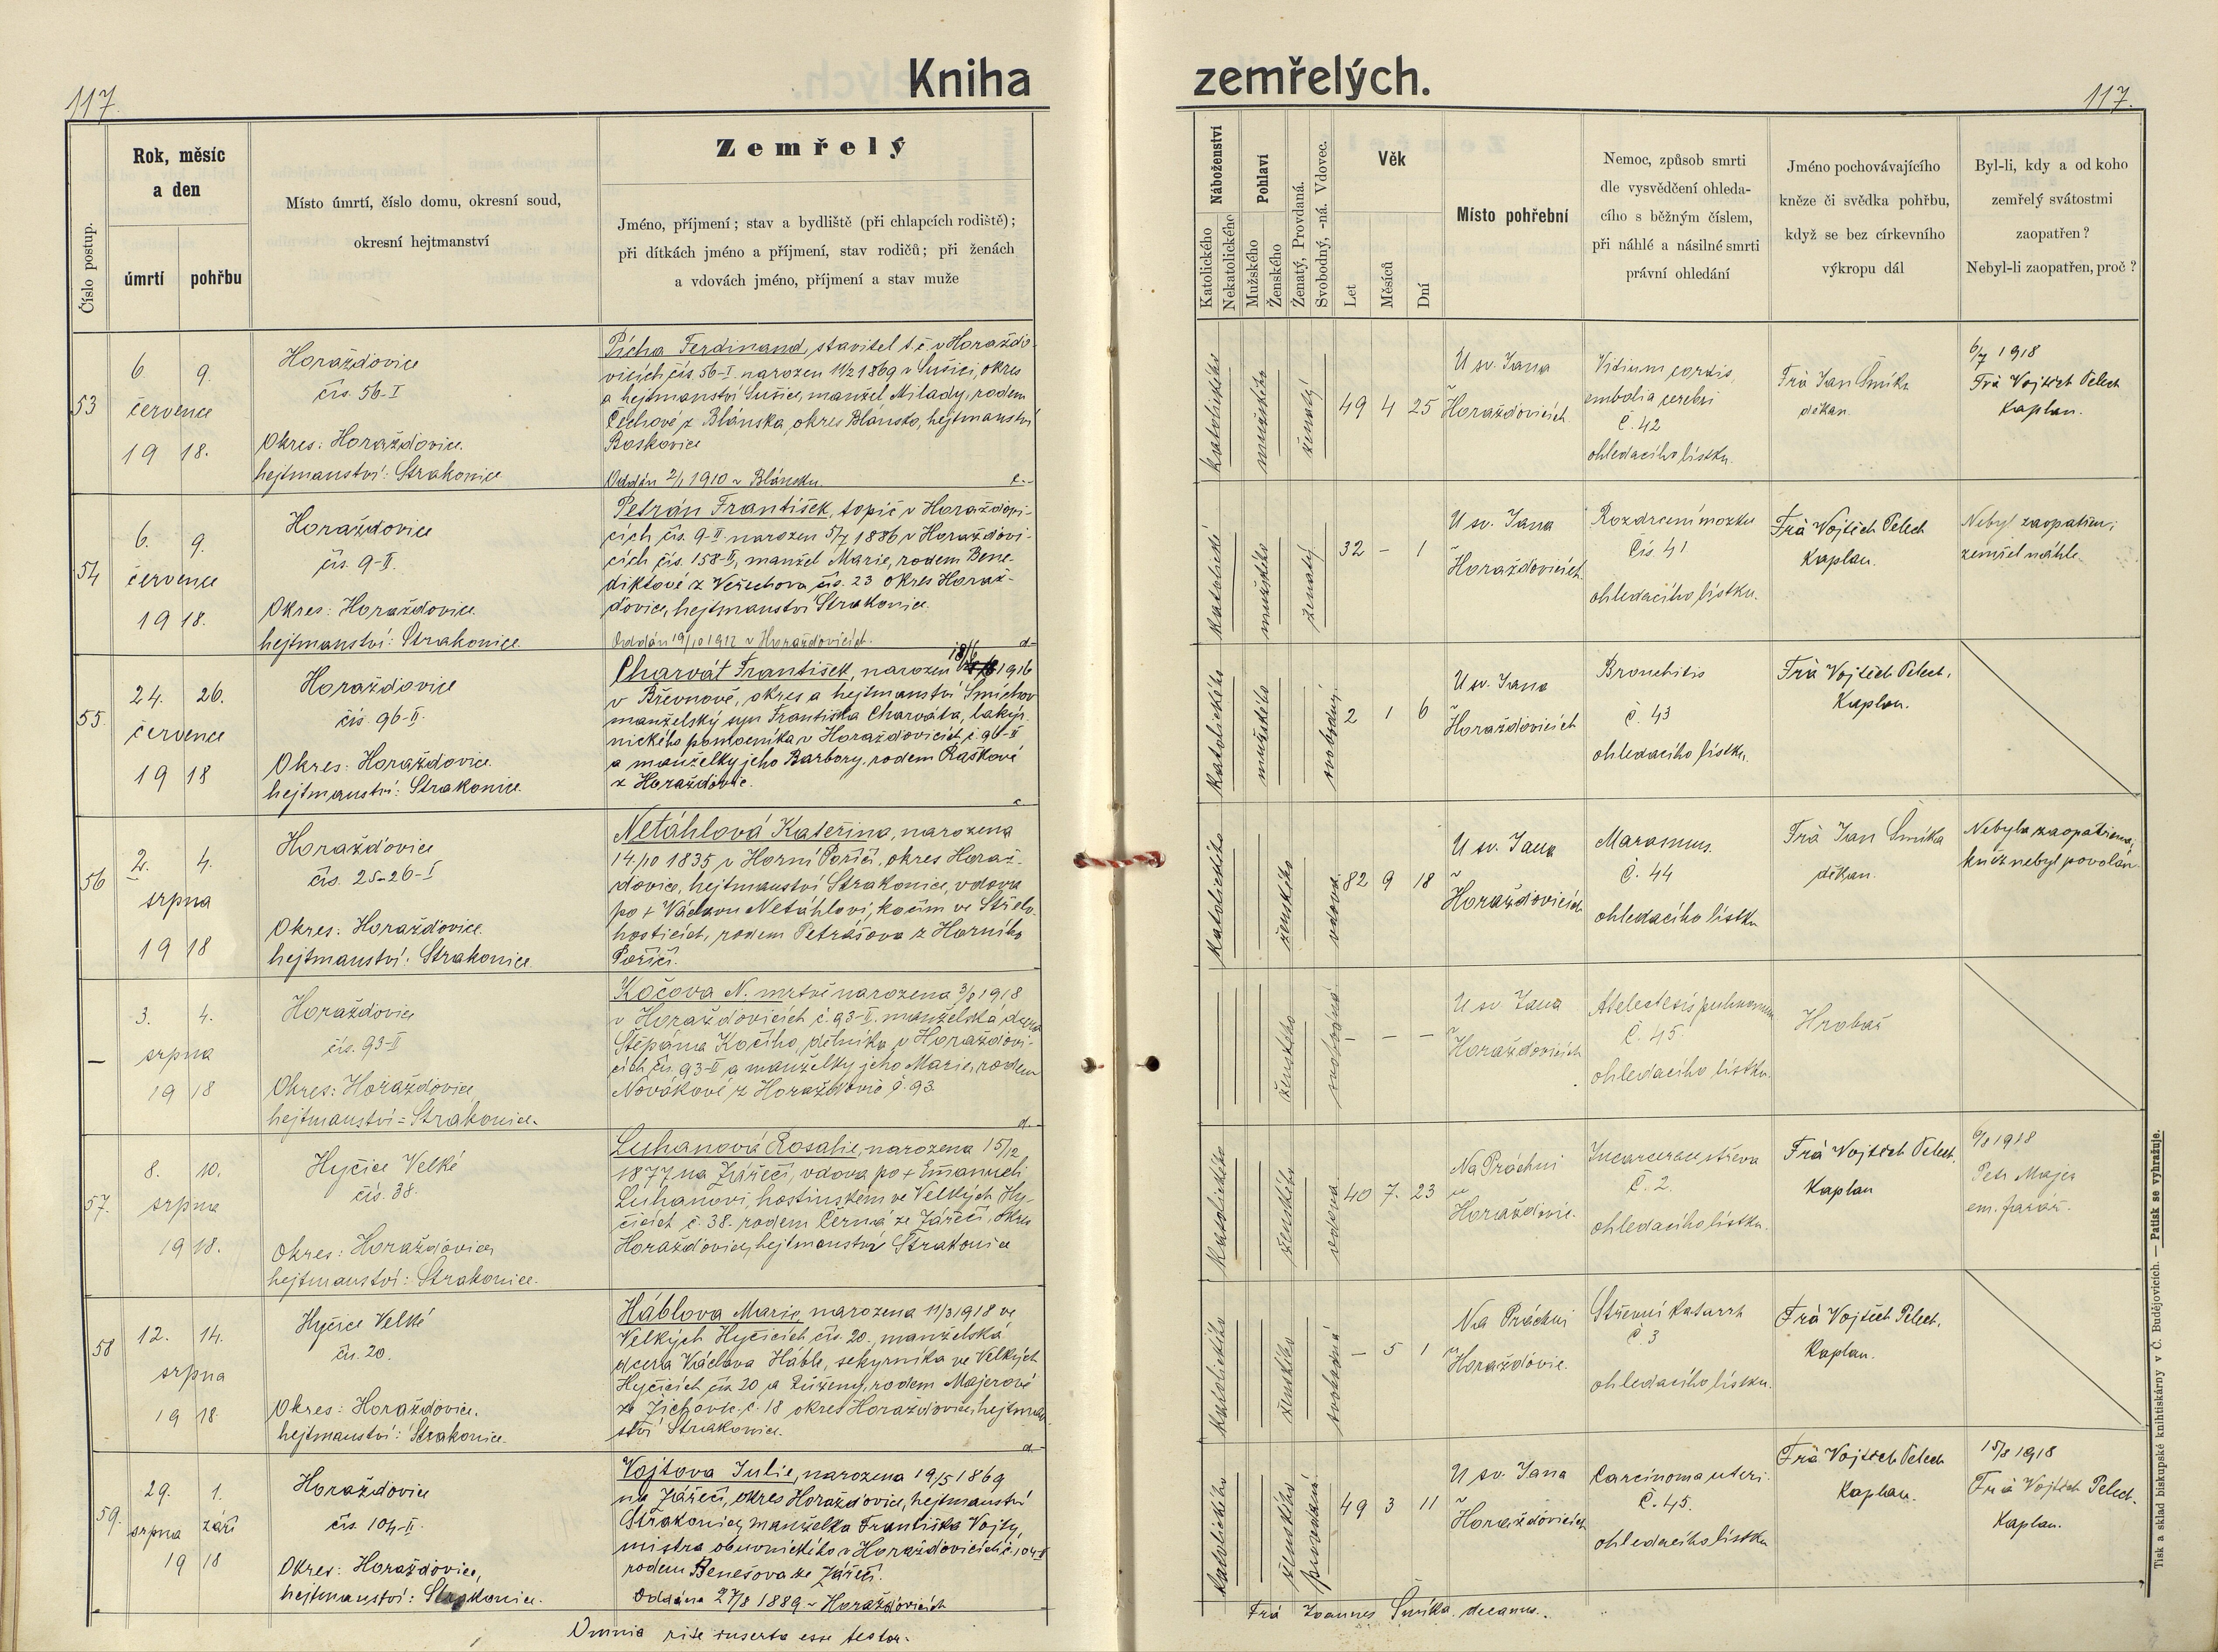 117.
Kniha
Číslo postup.
Rok, měsíc
a den
úmrtí
pohřbu
Místo úmrtí, číslo domu, okresní soud,
okresní hejtmanství
Zemřelý
Jméno, příjmení; stav a bydliště (při chlapcích rodiště);
při dítkách jméno a příjmení, stav rodičů; při ženách
a vdovách jméno, příjmení a stav muže
53
6 9.
července
19 18.
Horažďovice
čís. 56-I
Okres: Horažďovice.
hejtmanství: Strakonice
Pícha Ferdinand, stavitel t.č. v Horažďo-
vicích čís. 56-I. narozen 11/2 1869 v Sušici, okres
a hejtmanství Sušice, manžel Milady, rodem
Čechové z Blánska, okres Blánsko, hejtmanství
Boskovice
Oddán 2/1 1910 v Blánsku.
54
6. 9.
července
19 18.
Horažďovice
čís. 9-II.
Okres: Horažďovice.
hejtmanství: Strakonice.
Petrán František, topič v Horažďovi-
cích čís. 9-II. narozen 5/7 1886 v Horažďovi-
cích čís. 158-II, manžel Marie, rodem Bene-
diktové z čís. 23 okres Horaž-
ďovice, hejtmanství Strakonice.
Oddán 19/10 1912 v Horažďovicích.
55
24. 26.
července
19 18
Horažďovice
čís. 96-II.
Okres: Horažďovice.
hejtmanství: Strakonice.
Charvát František, narozen 18/6 1916
v Břevnově, okres a hejtmanství Smíchov
manželský syn Františka Charváta, lakýr-
nického pomocníka v Horažďovicích č. 96-II
a manželky jeho Barbory, rodem Raškové
z Horažďovic.
56
2. 4.
srpna
19 18
Horažďovice
čís. 25-26-I
Okres: Horažďovice.
hejtmanství: Strakonice.
Netáhlová Kateřina, narozena
14./10 1835 v Horní Poříčí, okres Horaž-
ďovice, hejtmanství Strakonice, vdova
po + Václavu Netáhlovi, kočím ve Střelo-
hosticích, rodem Petrášova z Horního
Poříčí.
—
3. 4.
srpna
19 18
Horažďovice
čís. 93-II
Okres: Horažďovice,
hejtmanství: Strakonice.
Kočova N. mrtvě narozena 3/8 1918
v Horažďovicích č. 93-II. manželská dcera
Štěpána Kočího, dělníka v Horažďovi-
cích čís. 93-II a manželky jeho Marie, rodem
Novákové z Horažďovic č. 93.
57.
8. 10.
srpna
19 18.
Hyčice Velké
čís. 38.
Okres: Horažďovice,
hejtmanství: Strakonice.
Luhanová Rosalie, narozena 15/12
1877 na Zářečí, vdova po + Emanueli
Luhanovi, hostinském ve Velkých Hy-
čicích č. 38. rodem Černá ze Zářečí, okres
Horažďovice, hejtmanství Strakonice
58
12. 14.
srpna
19 18
Hyčice Velké
čís. 20.
Okres: Horažďovice.
hejtmanství: Strakonice.
Háblova Marie, narozena 11/3 1918 ve
Velkých Hyčicích čís. 20., manželská
dcera Václava Hábla, sekyrníka ve Velkých
Hyčicích čís. 20 a Růženy, rodem Majerové
ze Žichovic č. 18 okres Horažďovice, hejtman-
ství Strakonice.
59.
29. 1.
srpna září
19 18
Horažďovice
čís. 104-II.
Okres: Horažďovice,
hejtmanství: Strakonice.
Vojtova Julie, narozena 19/5 1869
na Zářečí, okres Horažďovice, hejtmanství
Strakonice, manželka Františka Vojty,
mistra obuvnického v Horažďovicích č. 104-II
rodem Benešova ze Zářečí.
Oddána 27/8 1889 v Horažďovicích
Omnia rite inserta esse testor.
zemřelých.
117.
Náboženství
Katolického
Nekatolického
Pohlaví
Mužského
Ženského
Ženatý, Provdaná.
Svobodný, -ná. Vdovec.
Věk
Let
Měsíců
Dní
Místo pohřební
Nemoc, způsob smrti
dle vysvědčení ohleda-
cího s běžným číslem,
při náhlé a násilné smrti
právní ohledání
Jméno pochovávajícího
kněze či svědka pohřbu,
když se bez církevního
výkropu dál
Byl-li, kdy a od koho
zemřelý svátostmi
zaopatřen?
Nebyl-li zaopatřen, proč?
katolického
mužského
ženatý
49 4 25
U sv. Jana
v Horažďovicích
Vitium cordis,
embolia cerebri
č. 42
ohledacího lístku.
Frà Jan Šmíka
děkan.
6/7 1918
Frà Vojtěch Pelech
kaplan.
katolické
mužského
ženatý
32 – 1
U sv. Jana
v Horažďovicích
Rozdrcení mozku
čís. 41
ohledacího lístku.
Frà Vojtěch Pelech
Kaplan.
Nebyl zaopatřen;
zemřel náhle.
katolického
mužského
svobodný
2 1 6
U sv. Jana
v Horažďovicích
Bronchitis
č. 43
ohledacího lístku.
Frà Vojtěch Pelech,
Kaplan.
katolického
ženského
vdova
82 9 18
U sv. Jana
v Horažďovicích
Marasmus.
č. 44
ohledacího lístku
Frà Jan Šmíka
děkan.
Nebyla zaopatřena,
kněz nebyl povolán
ženského
svobodná
– – –
U sv. Jana
v Horažďovicích
Atelectasis pulmonum
č. 45
ohledacího lístku.
Hrobař
katolického
ženského
vdova
40 7. 23
Na Práchni
u Horažďovic.
Incarcerace střeva
č. 2.
ohledacího lístku.
Frà Vojtěch Pelech,
Kaplan
9/8 1918
Petr Majer
em. farář.
katolického
ženského
svobodná
– 5 1
Na Práchni
u Horažďovic.
Střevní katarrh
č. 3
ohledacího lístku.
Frà Vojtěch Pelech,
Kaplan.
katolického
ženského
provdaná
49 3 11
U sv. Jana
v Horažďovicích
Carcinoma uteri.
č. 45.
ohledacího lístku
Frà Vojtěch Pelech
Kaplan.
15/8 1918
Frà Vojtěch Pelech.
Kaplan.
Frà Joannes Šmíka, decanus.
Tisk a sklad biskupské knihtiskárny v Č. Budějovicích. — Patisk se vyhražuje.